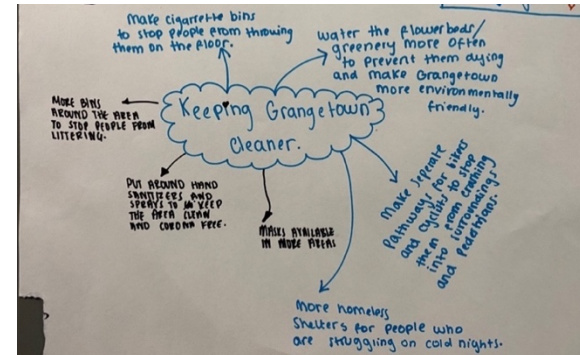 Make cigarrette bins
to stop people from throwing
them on the floor.
water the flowerbeds/
greenery more often
to prevent them dying
and make Grangetown
more environmentally
friendly.
Keeping Grangetown
Cleaner.
MORE BINS
AROUND THE AREA
TO STOP PEOPLE FROM
LITTERING.
PUT AROUND HAND
SANITIZERS AND
SPRAYS TO KEEP
THE AREA CLEAN
AND CORONA FREE.
MASKS AVAILABLE
IN MORE AREAS
Make seperate
Pathways for bikers
and cyclists to stop
them from crashing
into surroundings
and pedestrians.
More homeless
Shelters for people who
are struggling on cold nights.